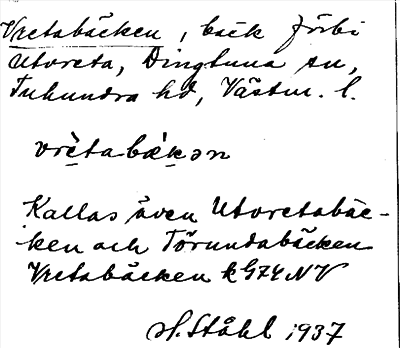 Vretabäcken, bäck förbi
Utvreta, Dingtuna sn,
Tuhundra hd, Västm. l.
vrètabækən
Kallas även Utvretabäc-
ken och Törundabäcken
Vretabäcken k G74 NV
H. Ståhl 1937